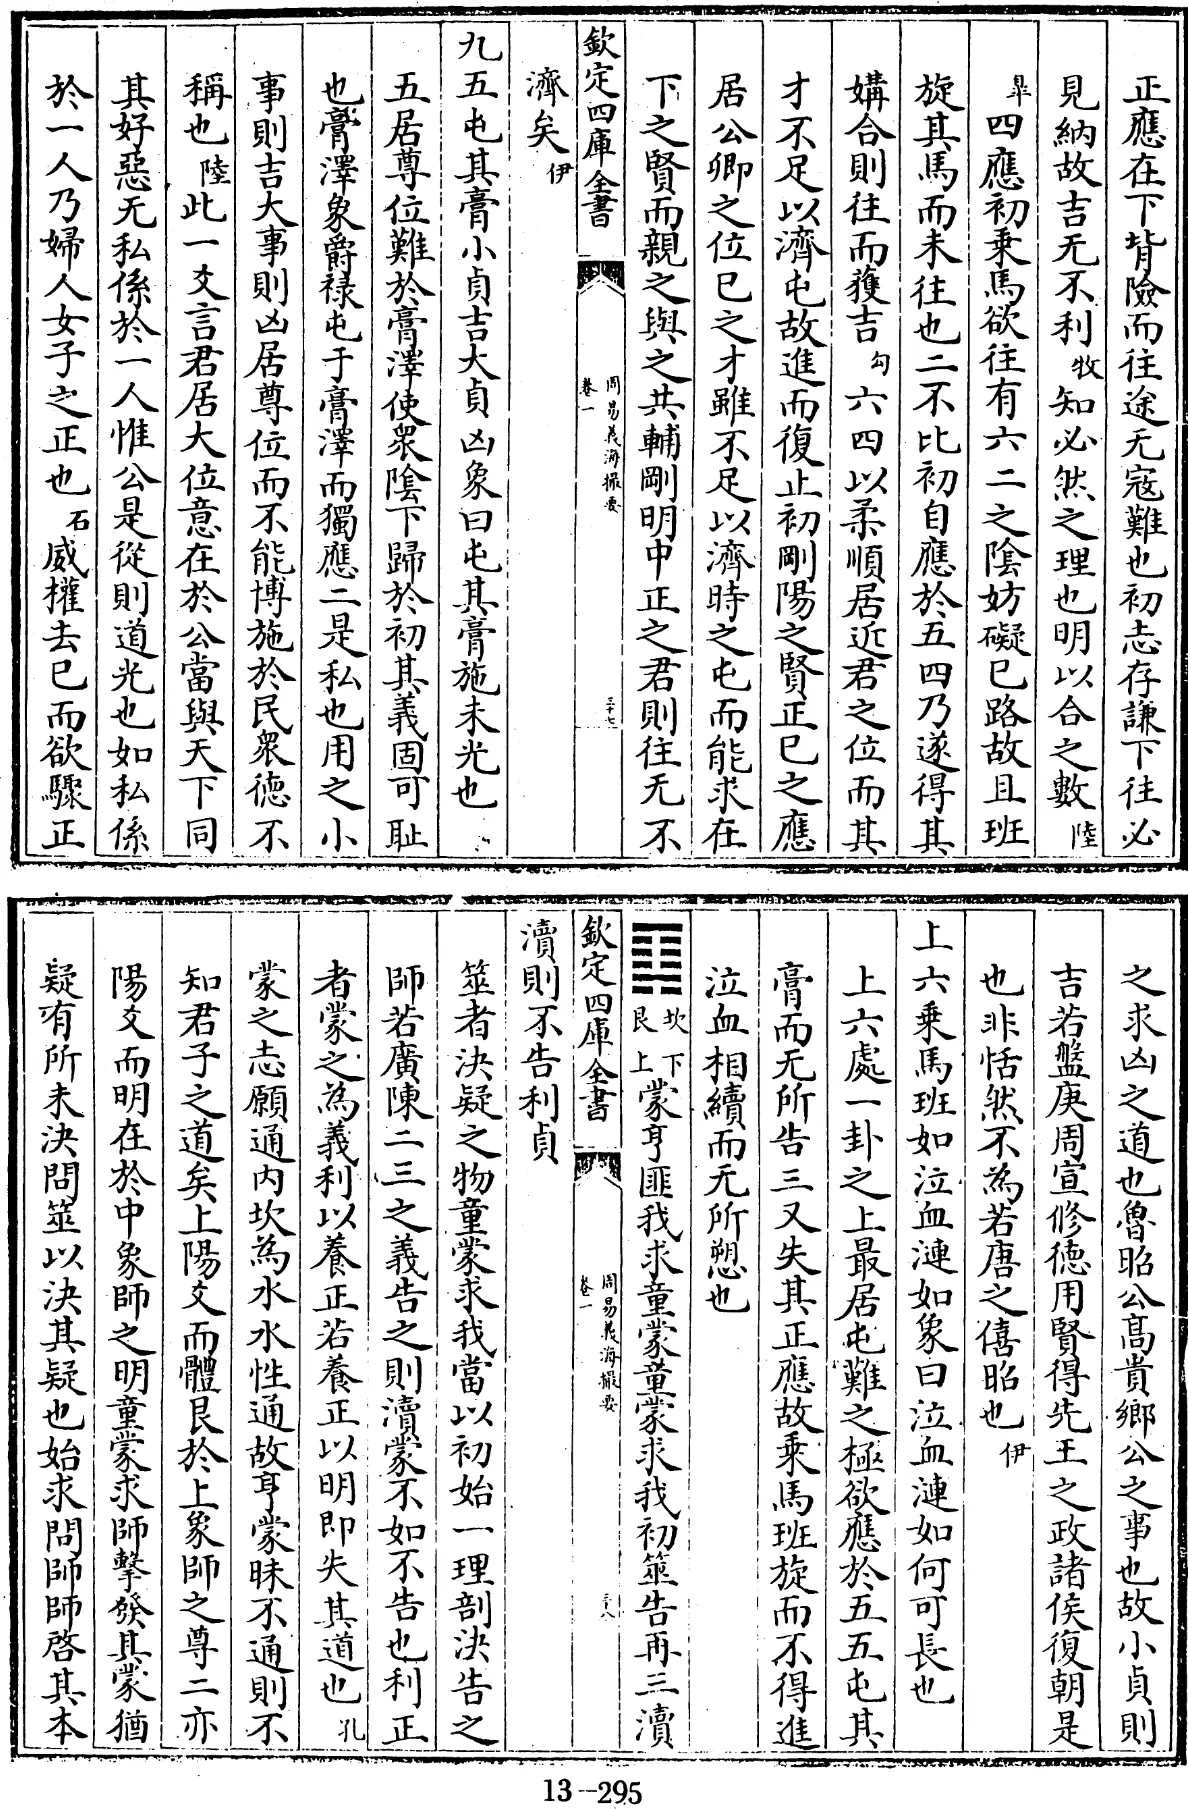 正應在下背險而往途无寇難也初志存謙下往必
見納故吉无不利牧知必然之理也明以合之數陸
四應初乗馬欲往有六二之陰妨礙已路故且班
旋其馬而未往也二不比初自應於五四乃遂得其
媾合則往而獲吉勾六四以柔順居近君之位而其
才不足以濟屯故進而復止初剛陽之賢正已之應
居公卿之位已之才雖不足以濟時之屯而能求在
下之賢而親之與之共輔剛明中正之君則往无不
欽定四庫全書
周易義海撮要
卷一
三十七
濟矣伊
九五屯其膏小貞吉大貞凶象曰屯其膏施未光也
五居尊位難於膏澤使衆陰下歸於初其義固可耻
也膏澤象爵禄屯于膏澤而獨應二是私也用之小
事則吉大事則凶居尊位而不能博施於民衆徳不
稱也陸此一爻言君居大位意在於公當與天下同
其好惡无私係於一人惟公是從則道光也如私係
於一人乃婦人女子之正也石威權去已而欲驟正
之求凶之道也魯昭公髙貴鄉公之事也故小貞則
吉若盤庚周宣修徳用賢得先王之政諸侯復朝是
也非恬然不為若唐之僖昭也伊
上六乗馬班如泣血漣如象曰泣血漣如何可長也
上六處一卦之上最居屯難之極欲應於五五屯其
膏而无所告三又失其正應故乘馬班旋而不得進
泣血相續而无所愬也
坎下
艮上
蒙亨匪我求童蒙童蒙求我初筮告再三瀆
欽定四庫全書
周易義海撮要
卷一
三八
瀆則不告利貞
筮者決疑之物童蒙求我當以初始一理剖決告之
師若廣陳二三之義告之則瀆蒙不如不告也利正
者蒙之為義利以養正若養正以明即失其道也孔
蒙之志願通内坎為水水性通故亨蒙昧不通則不
知君子之道矣上陽爻而體艮於上象師之尊二亦
陽爻而明在於中象師之明童蒙求師擊發其蒙猶
疑有所未決問筮以決其疑也始求問師師啓其本
13-295